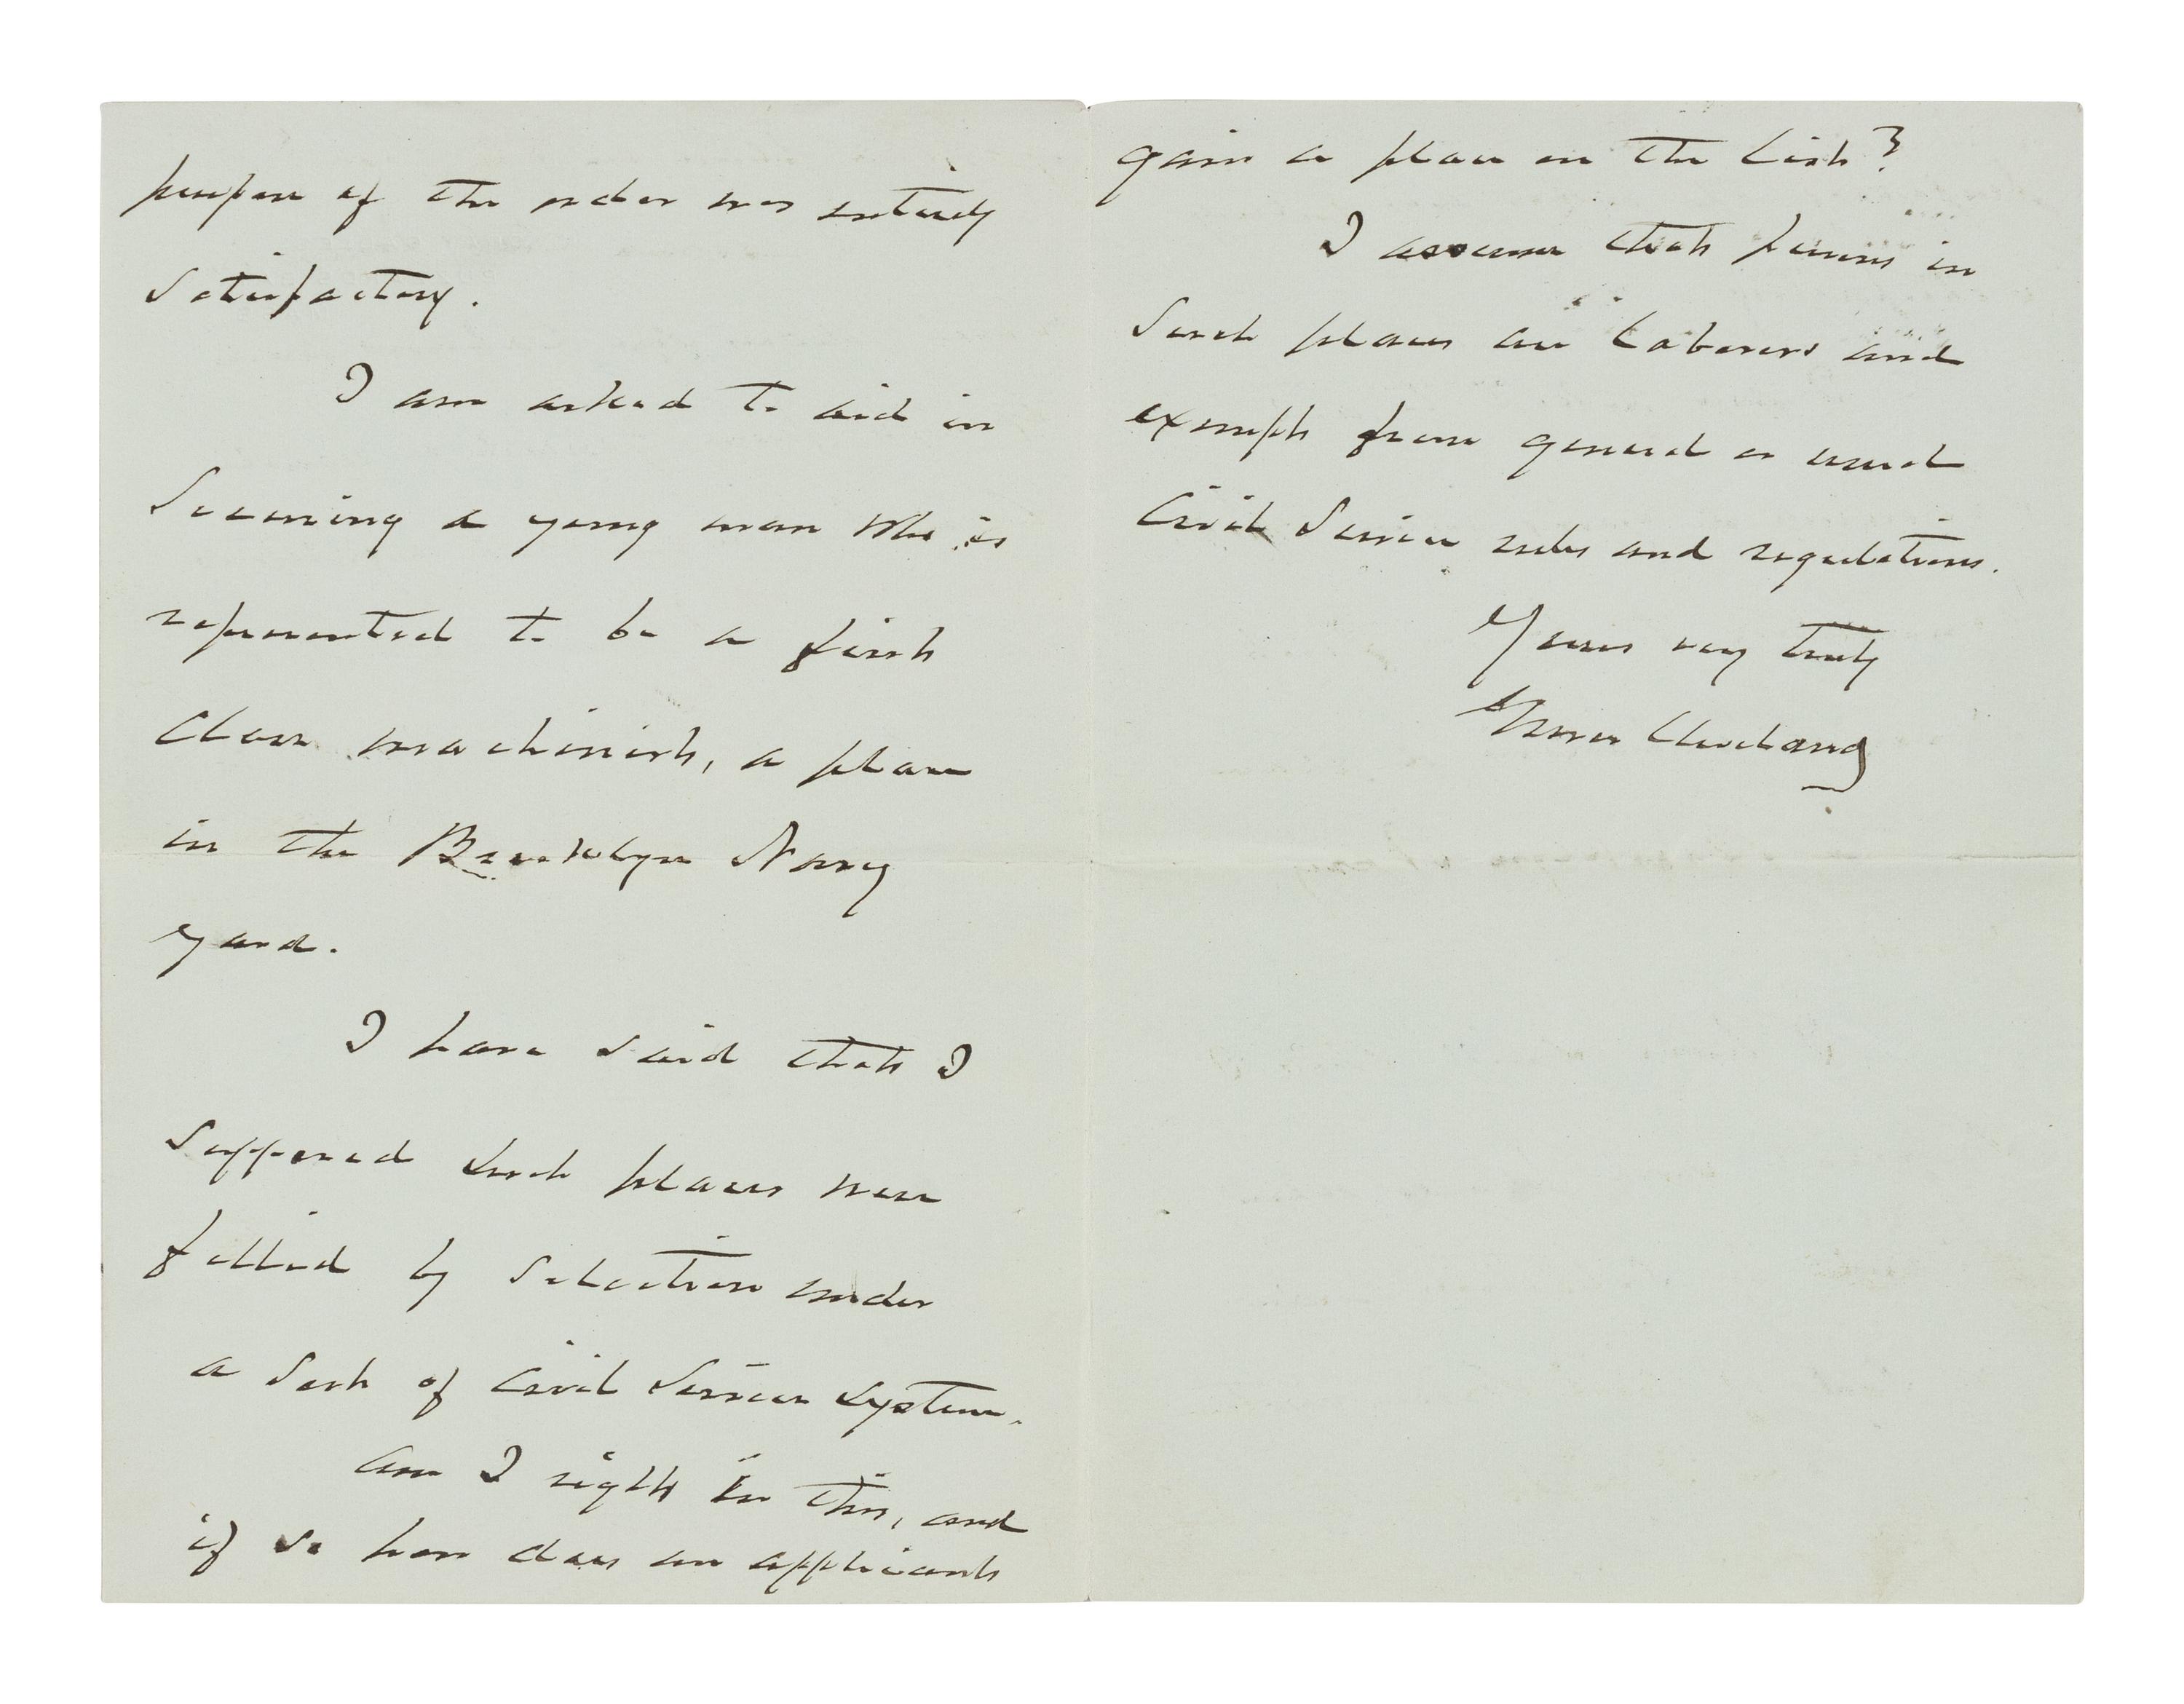 purpose of the order was entirely
satisfactory.
I am asked to aid in
securing a young man who is
represented to be a first
class machinist, a place
in the Brooklyn Navy
yard.
I have said that I
supposed such places were
filled by selection under
a sort of civil service system.
Am I right in this, and
if so how does an applicant
gain a place on the list?
I assume that persons in
such places are laborers and
exempt from general or usual
civil service rules and regulations.
Yours very truly
Grover Cleveland